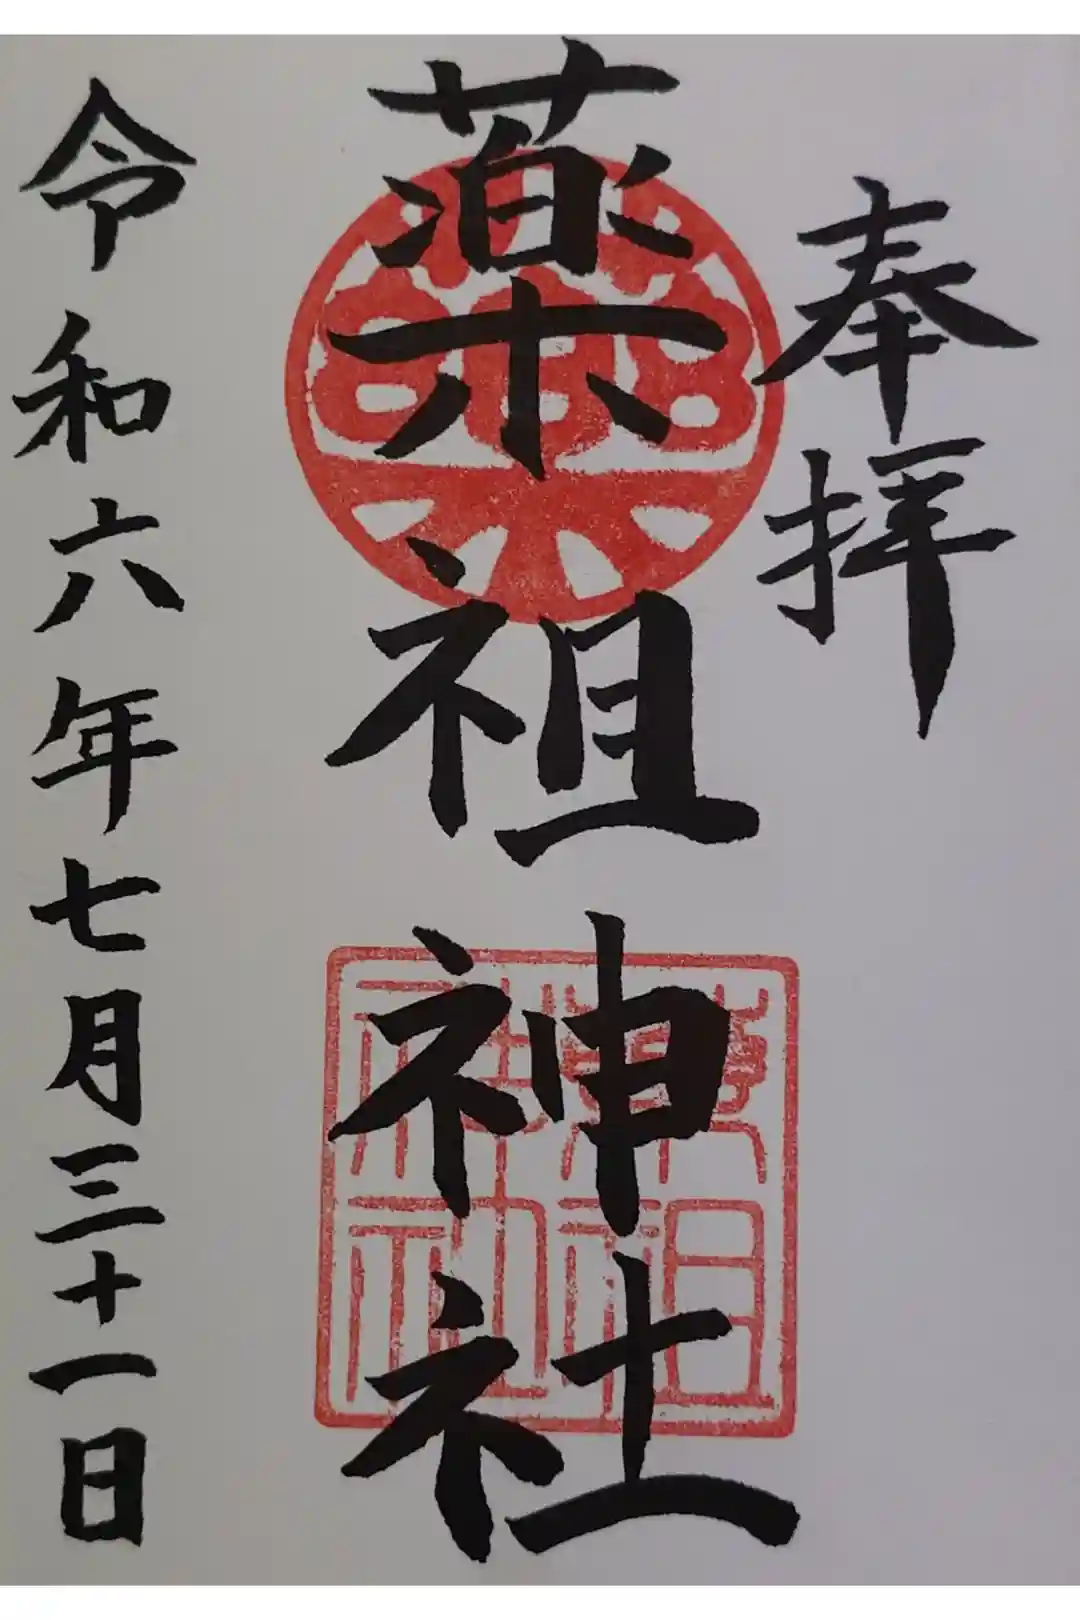 奉拝
薬祖神社
令和六年七月三十一日
薬祖神社